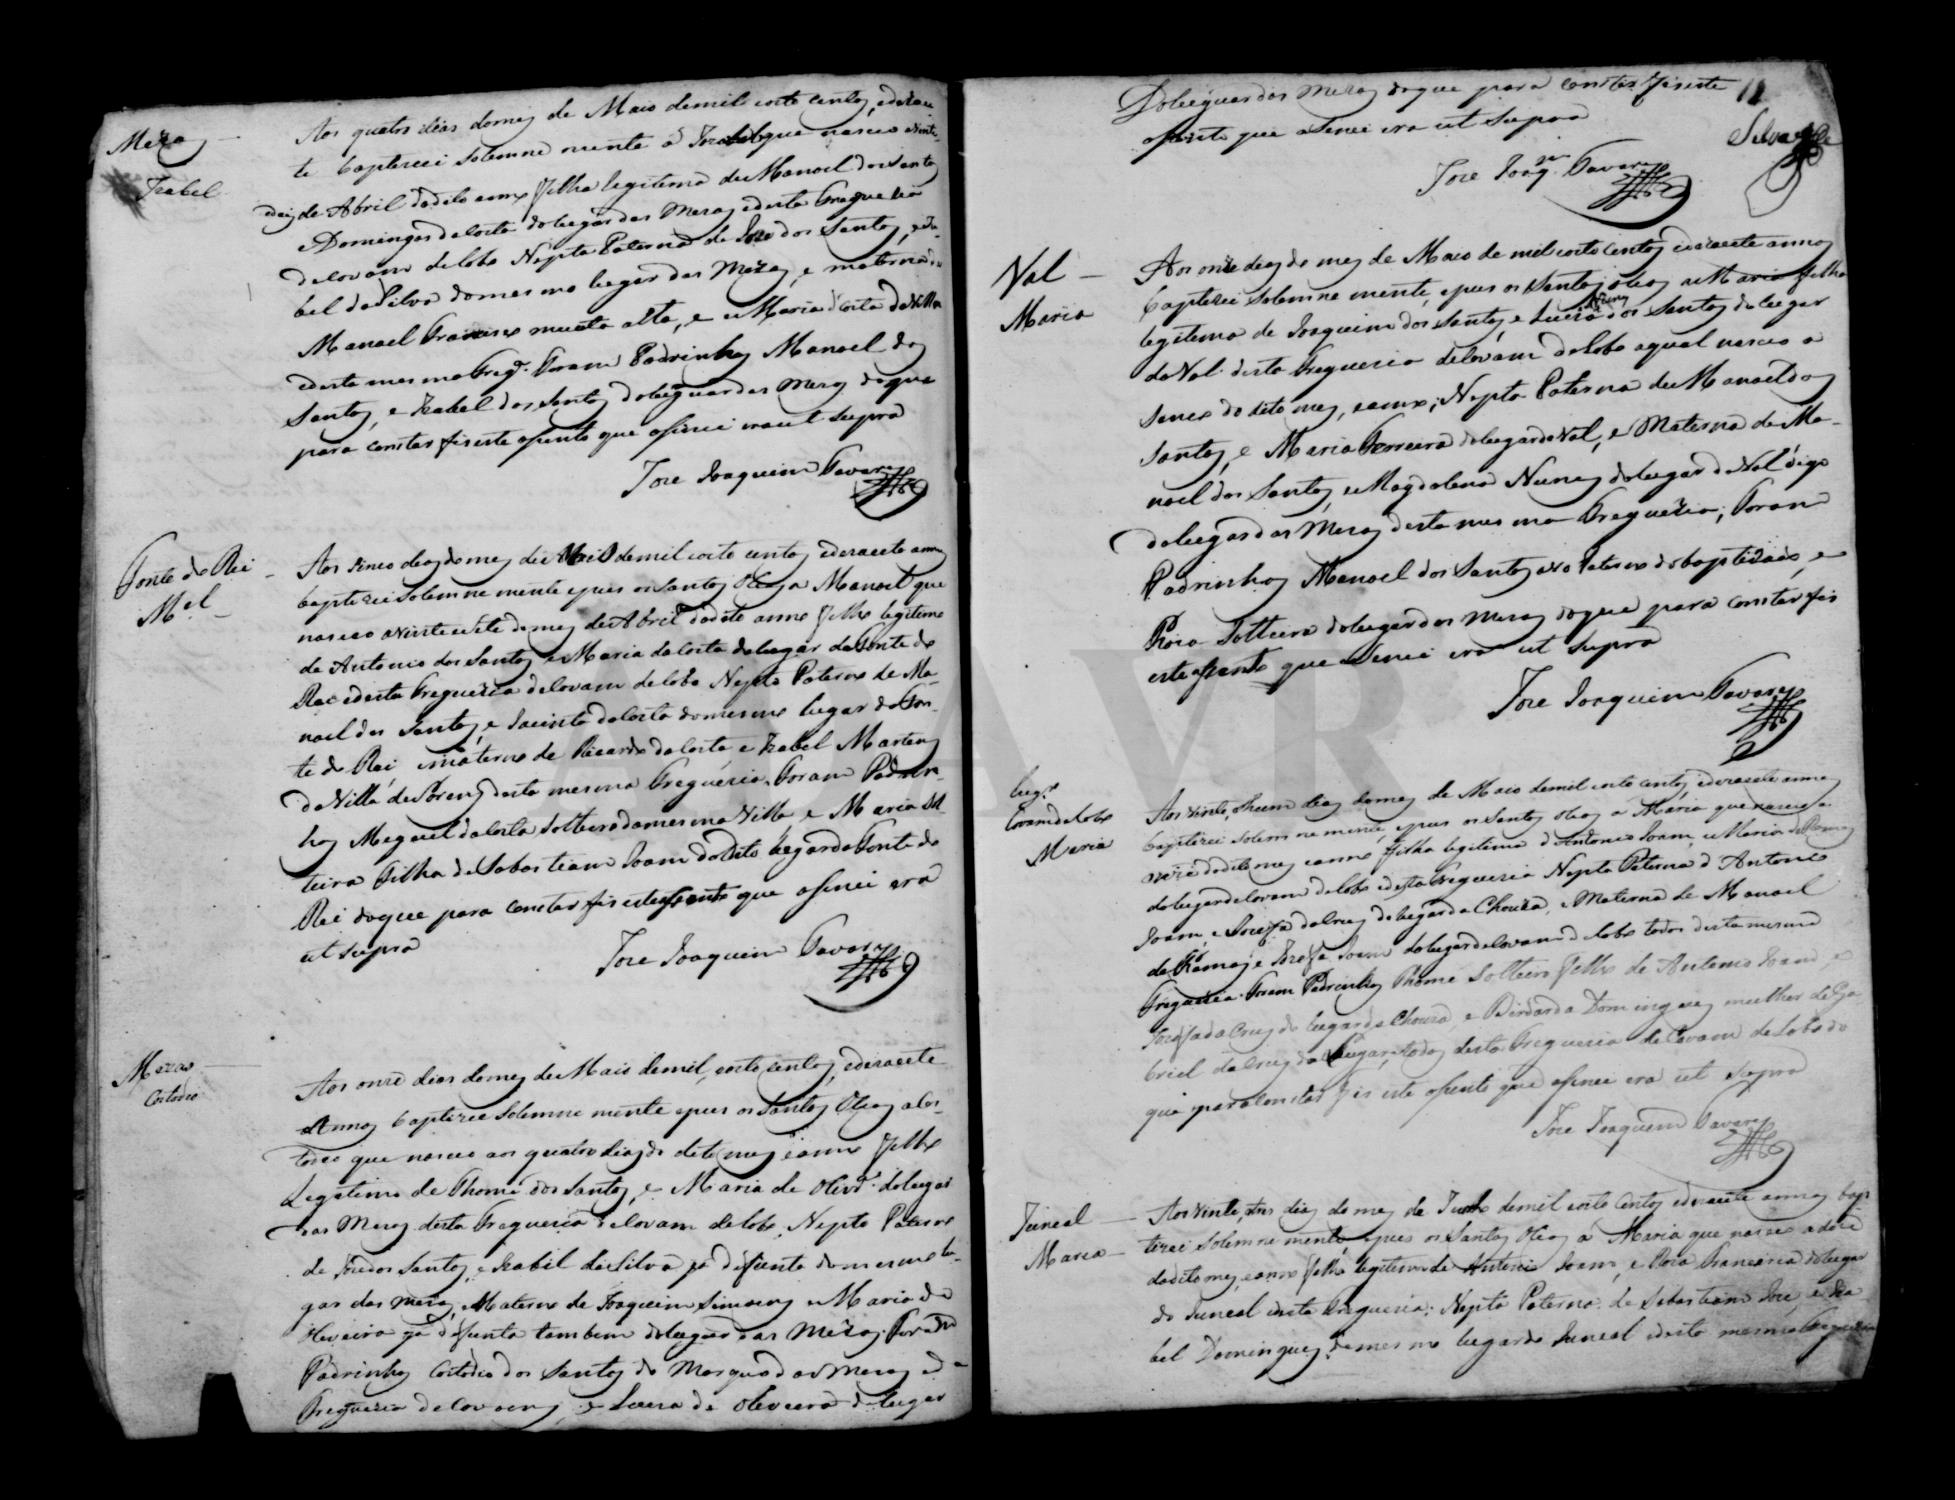 Mezas
Izabel
Aos quatro dias do mes de Maio de mil oito centos, e desase-
te baptizei solemne mente a Izabel que nasceo a vinte
e seis de Abril do dito anno filha legitima de Manoel dos Santos
e Domingas da Costa do lugar das Mezas e desta Freguezia
de Covam de Lobo Nepta Paterna de Joze dos Santos, e Iza-
bel da Silva do mesmo lugar das Mezas, e materna de
Manoel Francisco muzta alta, e Maria da Costa da Villa
e desta mesma Freg.ª Foram Padrinhos Manoel dos
Santos, e Izabel dos Santos do lugar das Mezas do que
para constar fiz este asento que asinei era ut supra
Joze Joaquim Tavares
Fonte do Rei
M.el
Aos sinco dias do mes de Maio de mil oito centos e desasete annos
baptizei solemne mente e pus os Santos Oleos a Manoel que
nasceo a vinte e sete do mes de Abril do dito anno filho legitimo
de Antonio dos Santos e Maria da Costa do lugar da Fonte do
Rei e desta Freguezia de Covam de Lobo Nepto Paterno de Ma-
noel dos Santos, e Jacinta da Costa do mesmo lugar da Fon-
te do Rei, e materno de Ricardo da Costa, e Izabel Martins
da Villa de Sorens desta mesma Freguezia. Foram Padrin-
hos Miguel da Costa solteiro da mesma Villa e Maria sol
teira Filha de Sabastiam Joam do dito lugar da Fonte do
Rei do que para constar fiz este asento que asinei era
ut supra
Joze Joaquim Tavares
Mezas
Costodio
Aos onze dias do mes de Maio de mil, oito centos, e desasete
Annos baptizei solemne mente e pus os Santos Oleos a Cos-
todio que nasceo aos quatro dias do dito mes e anno filho
Legitimo de Thomé dos Santos, e Maria de Olivr.ª do lugar
das Mezas desta Freguezia de Covam de Lobo, Nepto Paterno
de Joze dos Santos, e Izabil da Silva ja defunta do mesmo lu-
gar das Mezas, Materno de Joaquim Simoens e Maria de
Oliveira ja defunta tambem do lugar das Mezas. Foram
Padrinhos Costodio dos Santos do Marquo das Mezas e da
Freguezia de Covoens, e Luiza de Oliveira do lugar
12
Silva
Do lugar das Mezas do que para constar fiz este
asento que asinei era ut supra
Joze Joaq.m Tavares
Val
Maria
Aos onze dias do mes de Maio de mil oito centos e desasete annos
baptizei solemne mente, e pus os Santos Oleos a Maria filha
legitima de Joaquim dos Santos, e Luiza Nunes dos Santos do lugar
do Val desta Freguezia de Covam de Lobo a qual nasceo a
sinco do dito mes, e anno; Nepta Paterna de Manoel dos
Santos, e Maria Ferreira do lugar do Val, e Materna de Ma-
noel dos Santos, e Magdalena Nunes do lugar do Val digo
do lugar das Mezas desta mesma Freguezia; Foram
Padrinhos Manoel dos Santos avo Paterno do baptizado, e
Roza Solteira do lugar das Mezas do que para constar fiz
este asento que asinei era ut supra
Joze Joaquim Tavares
Lug.r
Covam de Lobo
Maria
Aos vinte, e hum dias do mes de Maio de mil oito centos e desasete annos
baptizei solemne mente, e pus os Santos Oleos a Maria que nasceo a
nove do dito mes e anno filha legitima de Antonio Joam, e Maria de Ramos
do lugar de Covam de Lobo e desta Freguezia Nepta Paterna de Antonio
Joam, e Jozefa da Cruz do lugar da Chouza, e Materna de Manoel
de Ramos, e Jozefa Joam do lugar de Covam de Lobo todos desta mesma
Freguezia. Foram Padrinhos Thome Solteiro filho de Antonio Joam, e
Jozefa da Cruz do lugar da Chouza, e Birdarda Domingues mulher de Ga
briel da Cruz do lugar, todos desta Freguezia de Covam de Lobo do
que para constar fiz este asento que asinei era ut supra
Joze Joaquim Tavares
Juncal
Maria
Aos vinte, e tres dias do mes de Junho de mil oito centos e desasete annos bap
tizei solemne mente, e pus os Santos Oleos a Maria que nasceo a doze
do dito mes, e anno filha legitima de Antonio Joam, e Roza Francisca do lugar
do Juncal desta Freguezia; Nepta Paterna de Sabastiam Joze, e Iza
bel Domingues do mesmo lugar do Juncal e desta mesma Freguezia